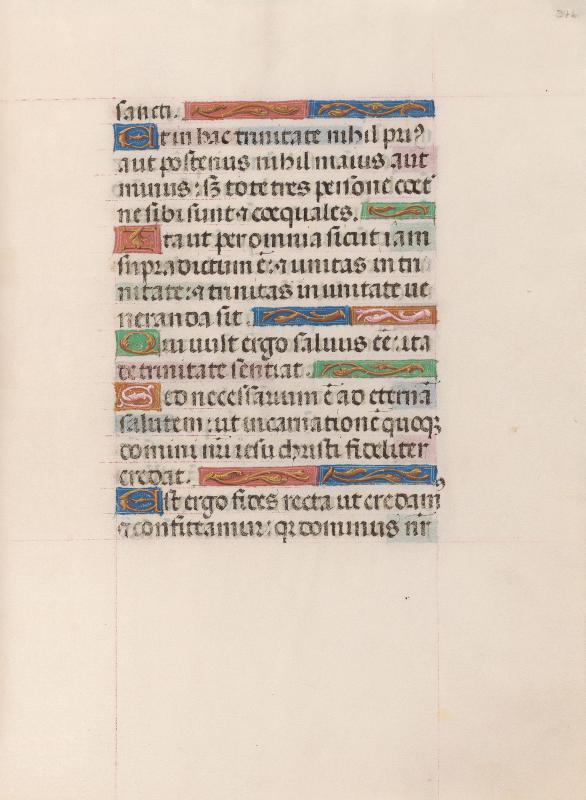 sancti.
Et in hac trinitate nihil priꝰ
aut posterius nihil maius aut
minus: sꝫ tote tres persone coet̄
ne sibi sunt ⁊ coequales.
Ita ut per omnia sicut iam
supradictum ē: ⁊ unitas in tri
nitate: ⁊ trinitas in unitate ue
neranda sit.
Qui uult ergo saluus eē: ita
de trinitate sentiat.
Sed necessarium ē ad eternā
salutem: ut incarnationē quoqꝫ
domini nr̄i iesu christi fideliter
credat.
Est ergo fides recta ut credamꝰ
⁊ confiteamur: qꝛ dominus nr̄